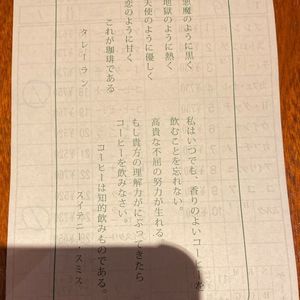 悪魔のように黒く
地獄のように熱く
天使のように優しく
恋のように甘く
これが珈琲である
タレーラン
私はいつでも、香りのよいコーヒーを
飲むことを忘れない。
高貴な不屈の努力が生れる
もし貴方の理解力がにぶってきたら
コーヒーを飲みなさい。
コーヒーは知的飲みものである。
スイテニー・スミス